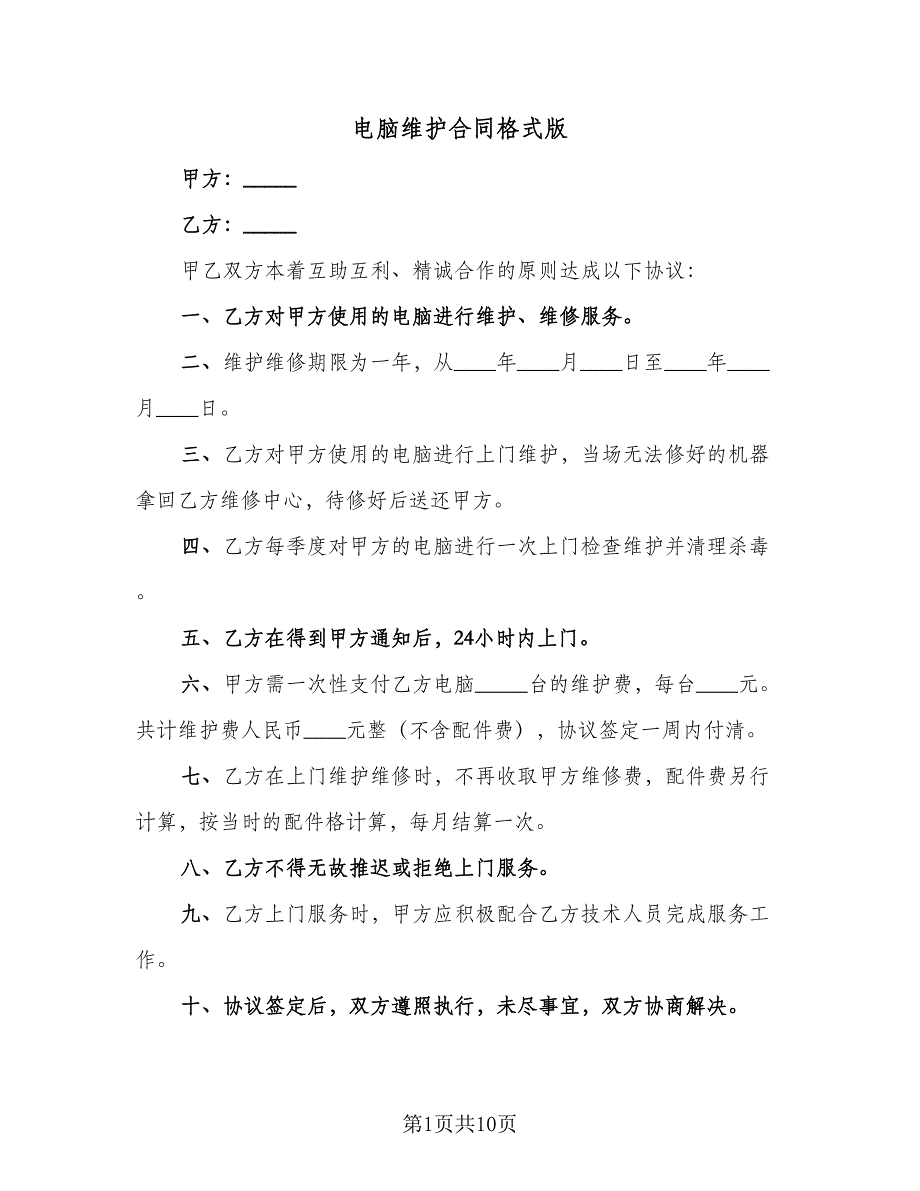 电脑维护合同格式版
甲方：_____
乙方：_____
甲乙双方本着互助互利、精诚合作的原则达成以下协议：
一、乙方对甲方使用的电脑进行维护、维修服务。
二、维护维修期限为一年，从____年____月____日至____年____
月____日。
三、乙方对甲方使用的电脑进行上门维护，当场无法修好的机器
拿回乙方维修中心，待修好后送还甲方。
四、乙方每季度对甲方的电脑进行一次上门检查维护并清理杀毒
。
五、乙方在得到甲方通知后，24小时内上门。
六、甲方需一次性支付乙方电脑_____台的维护费，每台____元。
共计维护费人民币____元整（不含配件费），协议签定一周内付清。
七、乙方在上门维护维修时，不再收取甲方维修费，配件费另行
计算，按当时的配件格计算，每月结算一次。
八、乙方不得无故推迟或拒绝上门服务。
九、乙方上门服务时，甲方应积极配合乙方技术人员完成服务工
作。
十、协议签定后，双方遵照执行，未尽事宜，双方协商解决。
第1页共10页